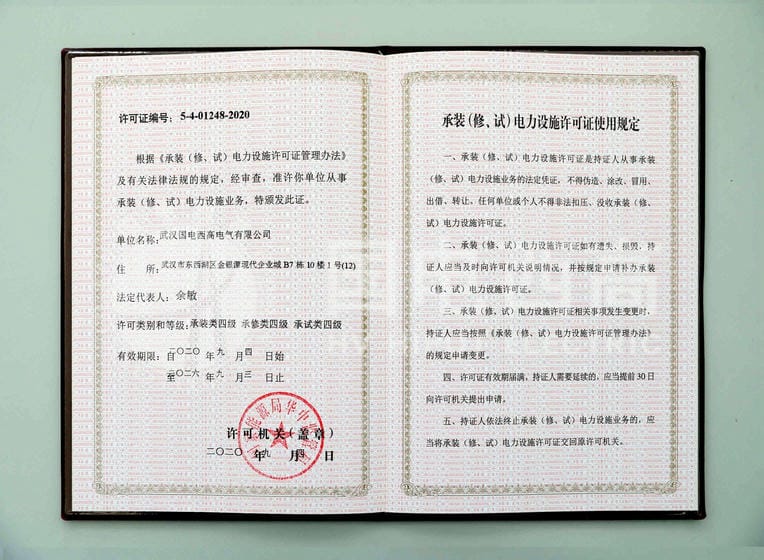 许可证编号：5-4-01248-2020
根据《承装（修、试）电力设施许可证管理办法》
及有关法律法规的规定，经审查，准许你单位从事
承装（修、试）电力设施业务，特颁发此证。
单位名称：武汉国电西高电气有限公司
住 所：武汉市东西湖区金银潭现代企业城 B7 栋 10 楼 1 号(12)
法定代表人：余敏
许可类别和等级：承装类四级 承修类四级 承试类四级
有效期限：自二〇二〇年九月四日始
至二〇二六年九月三日止
许可机关（盖章）
二〇二〇年九月四日
承装（修、试）电力设施许可证使用规定
一、承装（修、试）电力设施许可证是持证人从事承装
（修、试）电力设施业务的法定凭证，不得伪造、涂改、冒用、
出借、转让，任何单位或个人不得非法扣压、没收承装（修、
试）电力设施许可证。
二、承装（修、试）电力设施许可证如有遗失、损毁，持
证人应当及时向许可机关说明情况，并按规定申请补办承装
（修、试）电力设施许可证。
三、承装（修、试）电力设施许可证相关事项发生变更时，
持证人应当按照《承装（修、试）电力设施许可证管理办法》
的规定申请变更。
四、许可证有效期届满，持证人需要延续的，应当提前 30 日
向许可机关提出申请。
五、持证人依法终止承装（修、试）电力设施业务的，应
当将承装（修、试）电力设施许可证交回原许可机关。